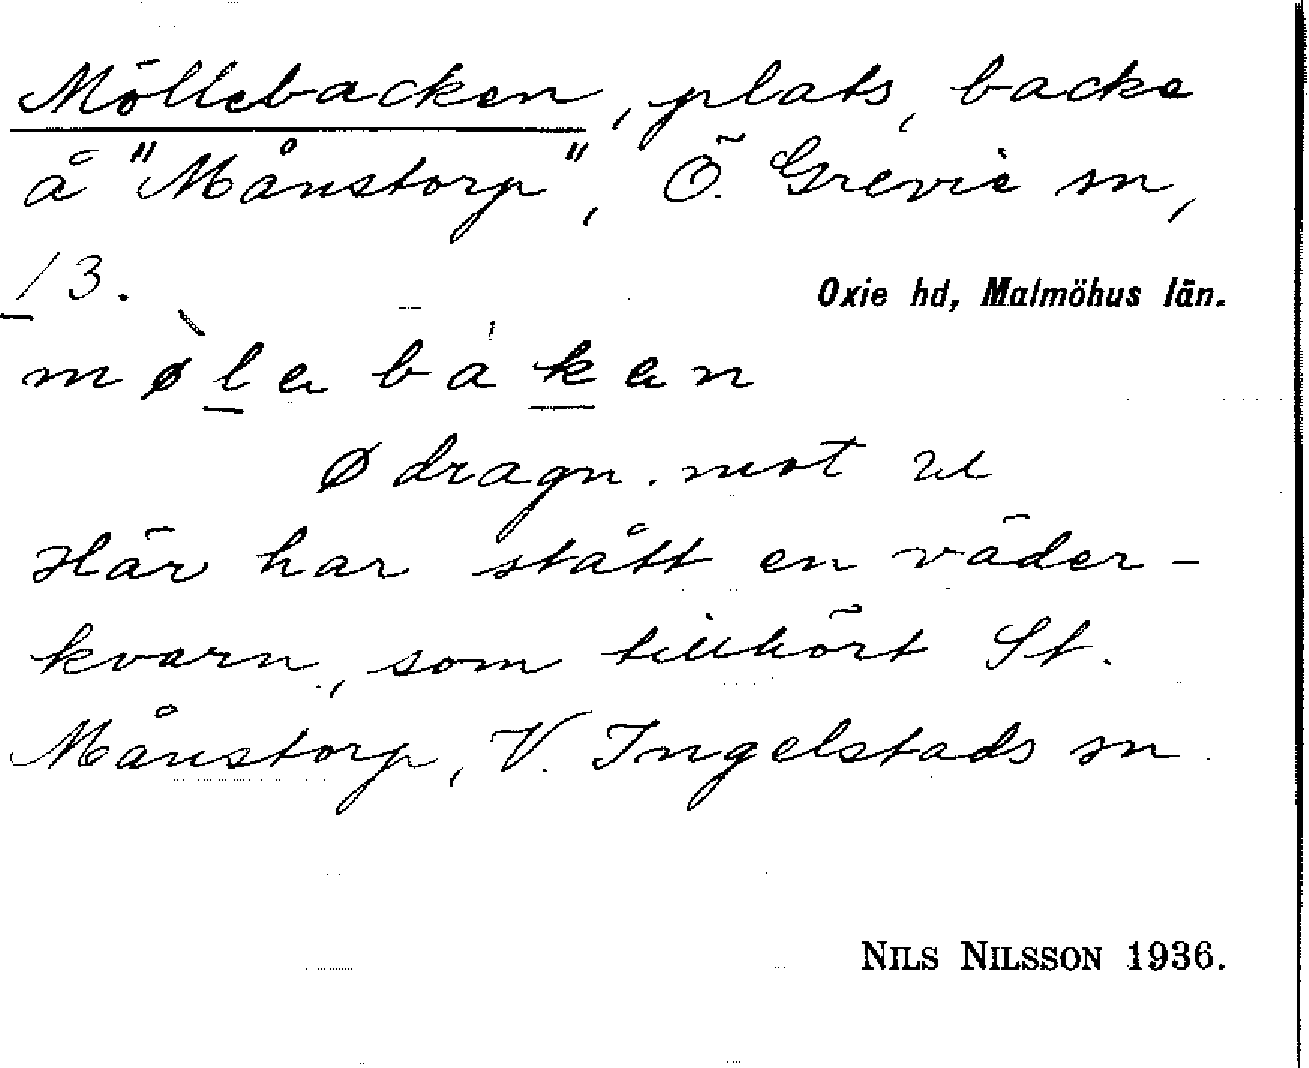 Möllebacken, plats, backe
å "Månstorp", Ö. Grevie sn,
13.
Oxie hd, Malmöhus län.
mø̀la bákan
ø dragn. mot
Här har stått en väder-
kvarn, som tillhört St.
Månstorp, V. Ingelstads sn.
NILS NILSSON 1936.